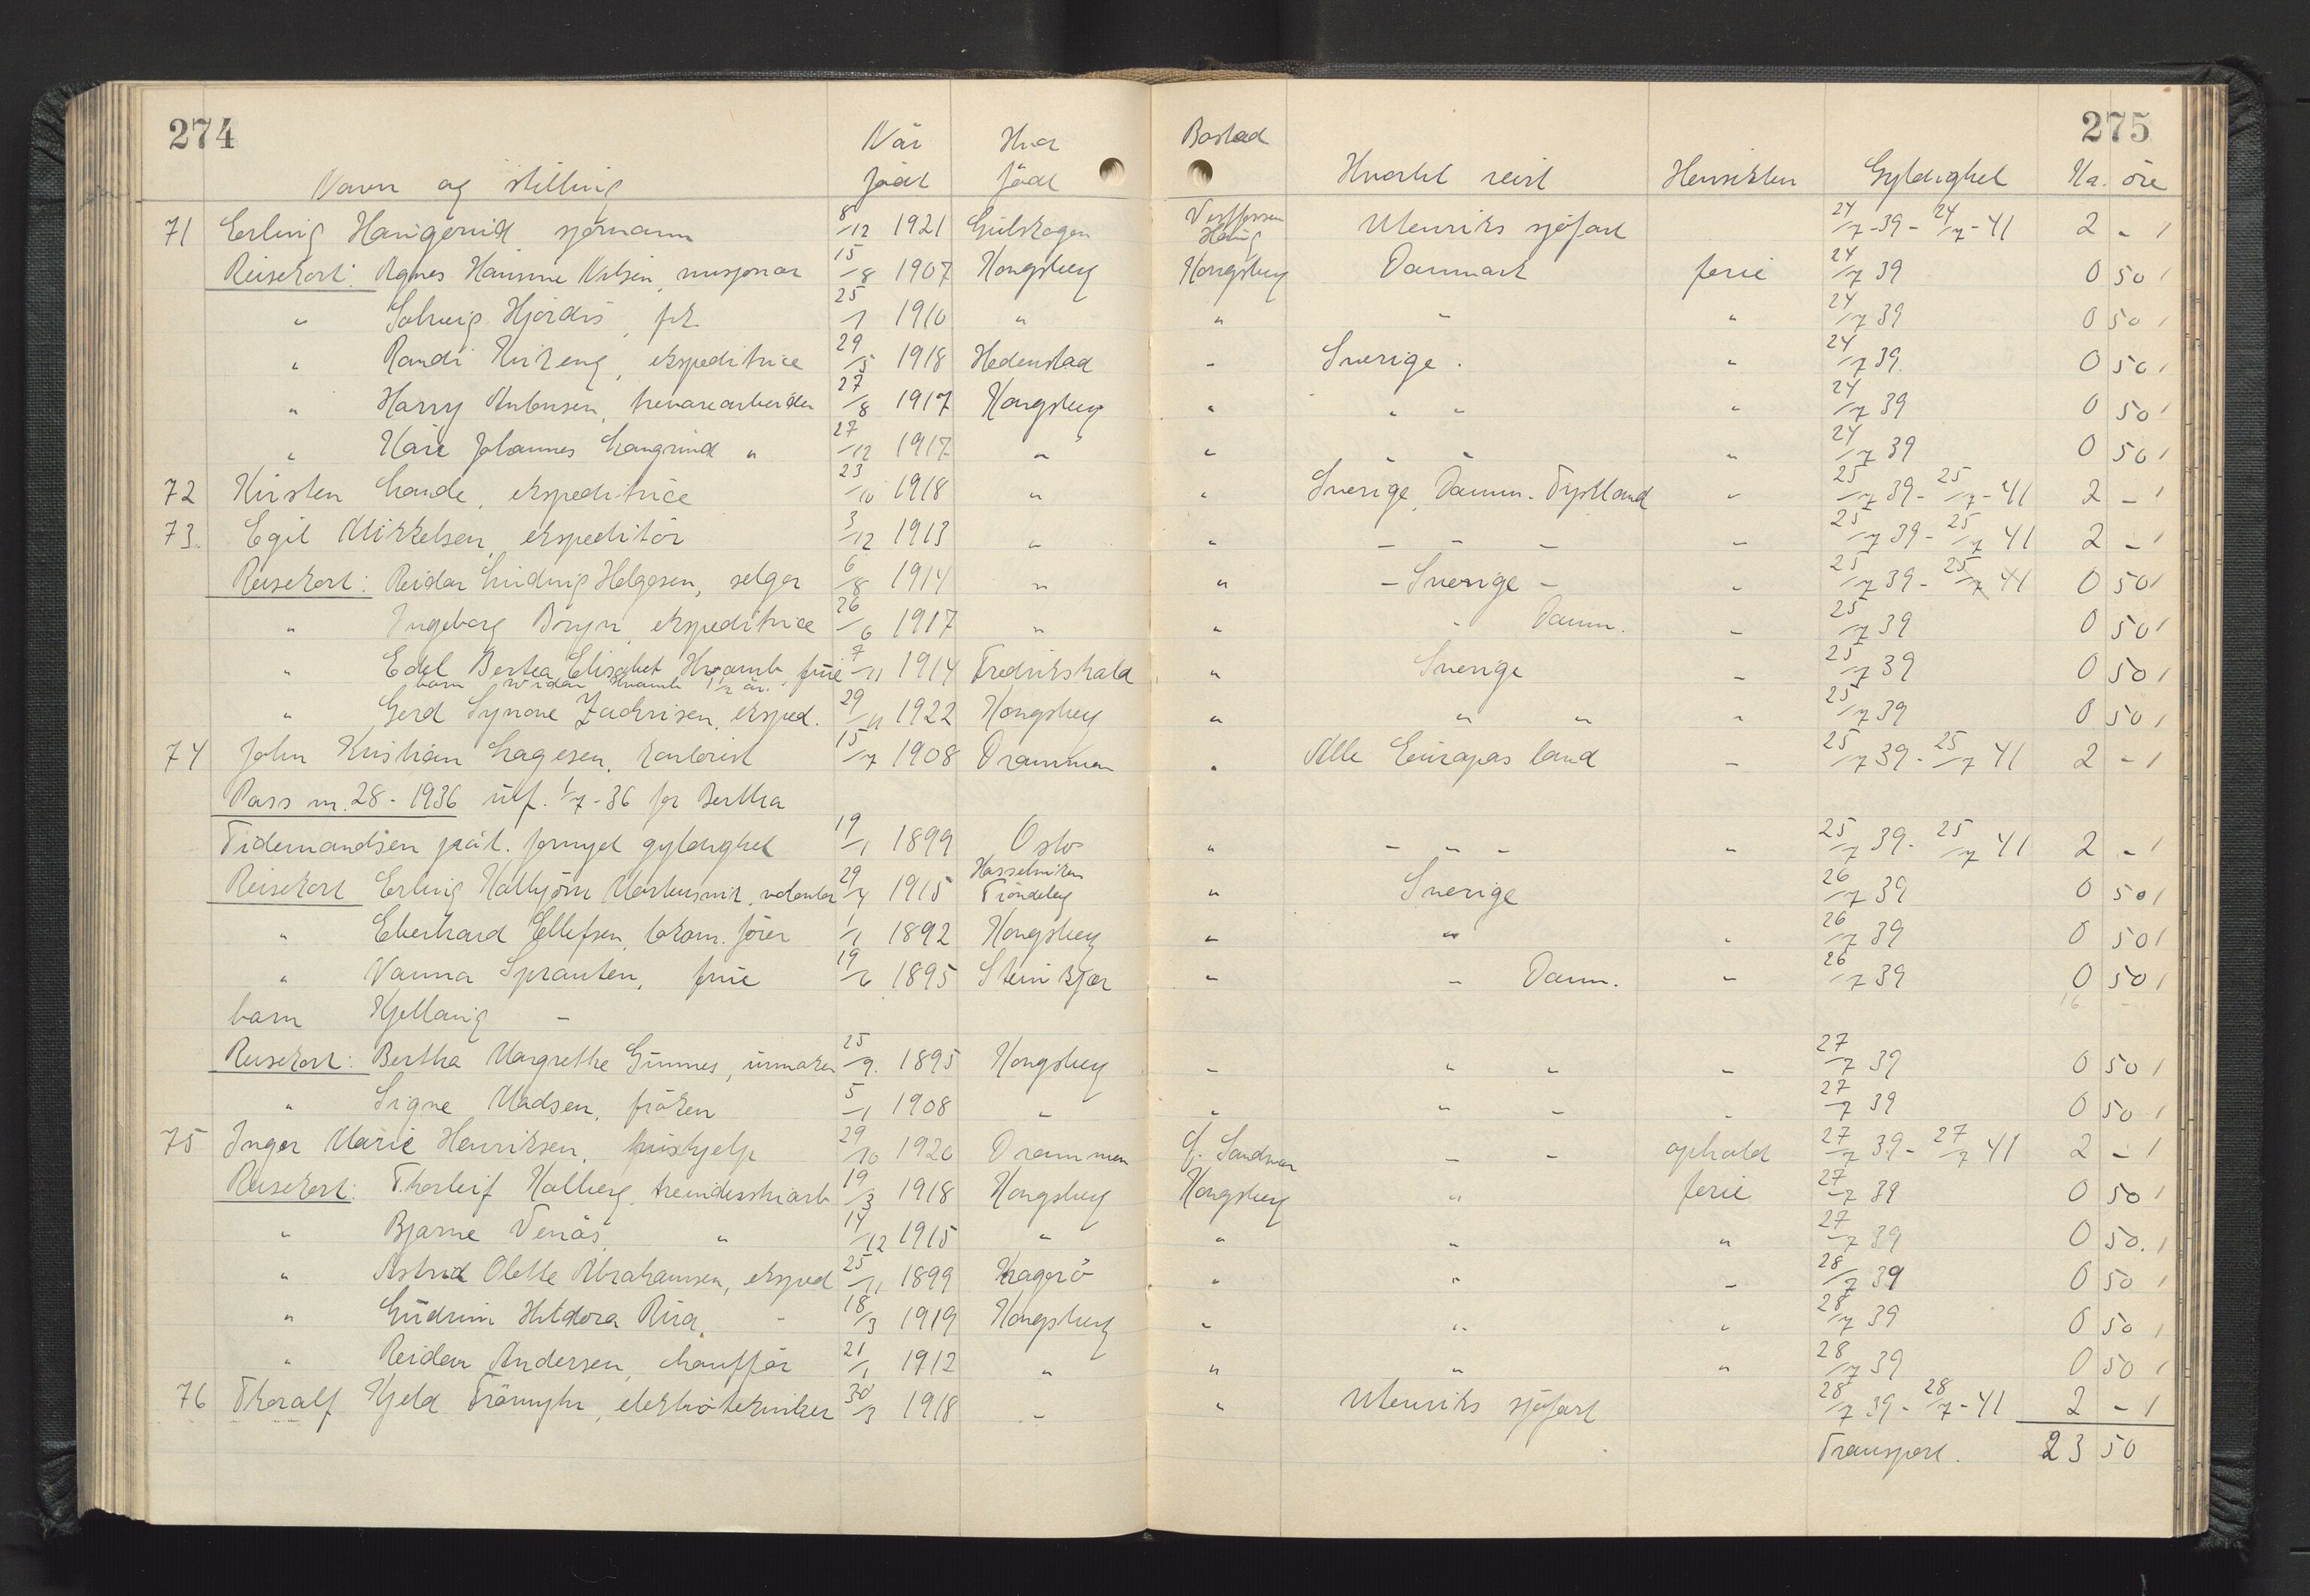 274 275
Når Hvor Bostad
Navn og stilling født født Hvorhen reist Hensikten Gyldighet Kr. öre
71 Erling Haugerud sjømann 8/12 1921 Gulskogen Vestfossen Utenriks sjöfart 24/7-39 - 24/7-41 2 -
Reisekort: Agnes Hansine Nilsen, misjonær 15/8 1907 Kongsberg Kongsberg Danmark ferie 24/7 39 0 50
" Solveig Hjördis, frk. 25/1 1910 " " " " 24/7 39 0 50
" Randi Kirkeng, ekspeditrice 29/5 1918 Hedenstad - Sverige. " 24/7 39. 0 50
" Harry Antonsen, trevarearbeider 27/8 1917 Kongsberg " " " " 24/7 39 0 50
" Kåre Johannes Langrind " 27/12 1917 " " " " " 24/7 39 0 50
72 Kirsten Lande, ekspeditrice 23/10 1918 " " Sverige, Danm. Tyskland " 25/7 39 - 25/7-41 2 -
73. Egil Mikkelsen, ekspeditör 3/12 1913 " " - - - - 25/7 39 - 25/7 41 2 -
Reisekort: Reidar Ludvig Helgesen, selger 6/8 1914 " " - Sverige - " 25/7 39 - 25/7 41 0 50
" Ingeborg Bryn, ekspeditrice 26/6 1917 " " " Danm. - 25/7 39 0 50
" Edel Bertea Elisabet Hvamb, frue 7/11 1914 Fredrikshald " Sverige - 25/7 39 0 50
barn Widar Hvamb 1 1/2 år.
" Gerd Synove Zachrisen, eksped. 29/11 1922 Kongsberg " " " " 25/7 39 0 50
74 John Kristian Lagesen, kontorist 15/7 1908 Drammen " Alle Europas land - 25/7 39 - 25/7 41 2 -
Pass nr. 28 - 1936 utf. 1/7-36 for Bertha
Tidemandsen påt. fornyet gyldighet 19/1 1899 Oslo " - - - " 25/7 39 - 25/7 41 2 -
Reisekort Erling Hallbjörn Markussvik, 29/4 1915 Hasselviken Tröndelag " Sverige 26/7 39 0 50
" Eberhard Ellefsen, lokom. förer 1/1 1892 Kongsberg " " " 26/7 39 0 50
" Nanna Sprauten, frue 19/6 1895 Steinkjær " - Danm. - 26/7 39 0 50
barn Kjellaug -
Reisekort: Bertha Margrethe Gunnes, urmaker 25/9. 1895 Kongsberg - " " - 27/7 39 0 50
" Signe Madsen, fröken 5/1 1908 " " " - - 27/7 39 0 50
75 Inger Marie Henriksen, hushjelp 29/10 1920 Drammen Ö. Sandsvær - - ophold 27/7 39 - 27/7 41 2 -
Reisekort: Thorleif Kolberg, treindustriarb 19/3 1918 Kongsberg Kongsberg " ferie 27/7 39 0 50
" Bjarne Venås " 14/12 1915 " " " " 27/7 39 0 50.
" Astrid Olette Abrahamsen, eksped 25/11 1899 Kragerö " " - 28/7 39 0 50
" Gudrun Hildora Rua, - 18/3 1919 Kongsberg " " " 28/7 39 0 50
" Reidar Andersen, chauffør 21/1 1912 " " " " 28/7 39 0 50
76 Thoralf Kjeld Frömyhr, elektrotekniker 30/3 1918 - " Utenriks sjöfart 28/7 39 - 28/7-41 2 -
Transport. 23 50